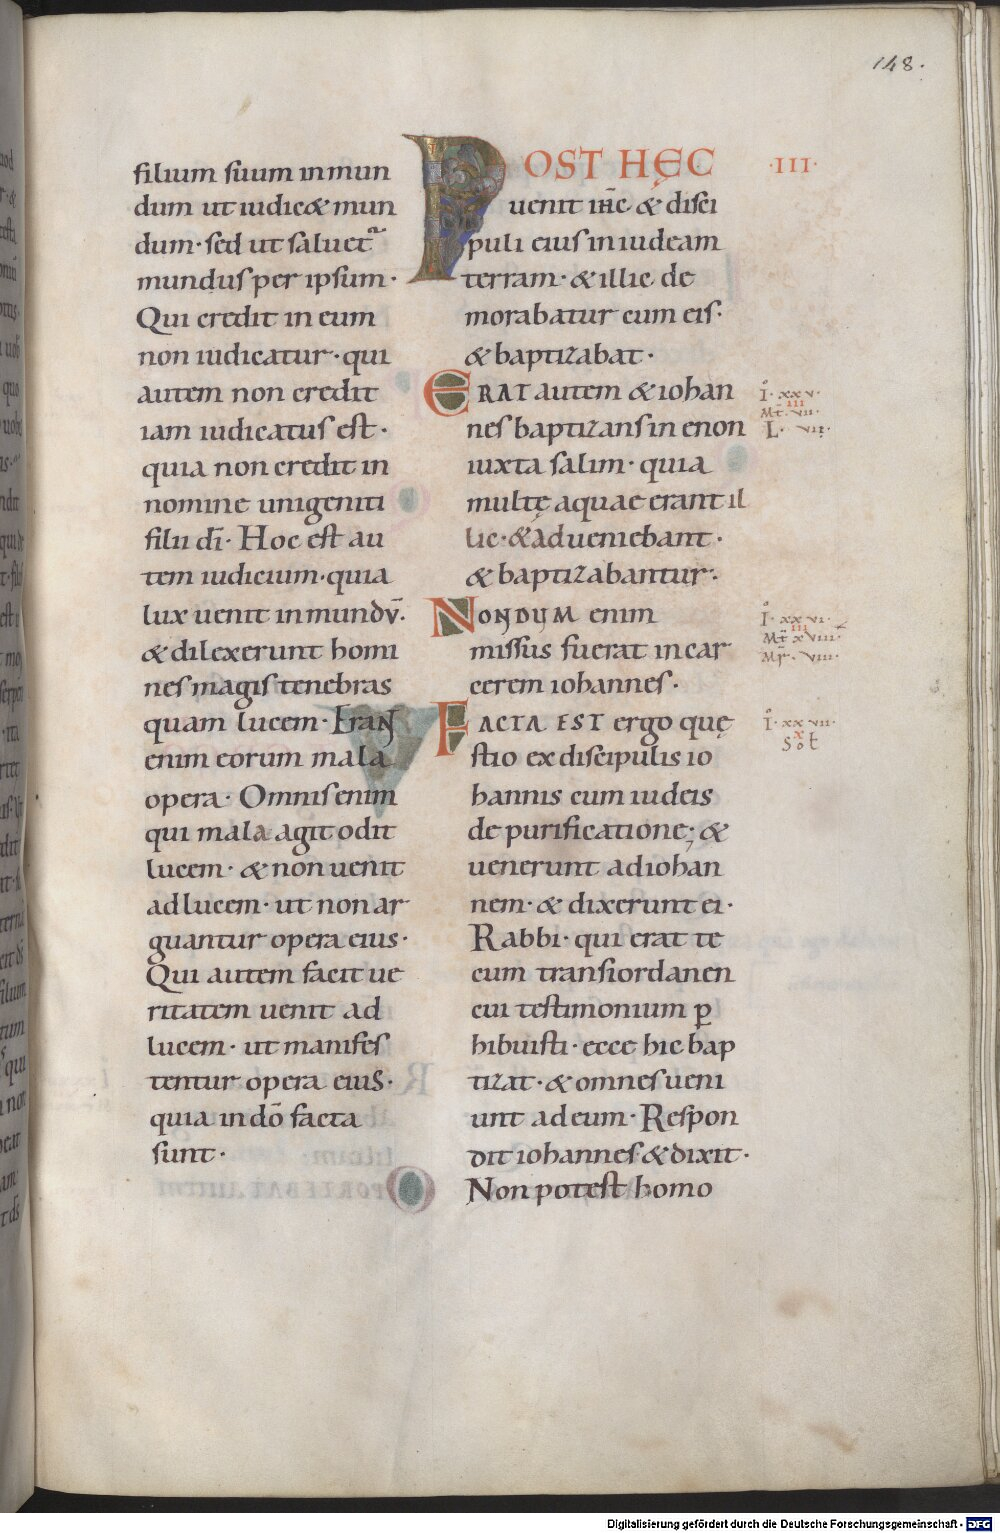 148.
filium suum inmun
dum ut iudic& mun
dum· sed ut saluet᷑
mundus per ipsum·
Qui credit in eum
non iudicatur· qui
autem non credit
iam iudicatus est·
quia non credit in
nomine unigeniti
filii dī· Hoc est au
tem iudicium· quia
lux uenit inmundū·
& dilexerunt homi
nes magis tenebras
quam lucem· Erant
enim eorum mala
opera· Omnis enim
qui mala agit odit
lucem· & non uenit
ad lucem· ut non ar
guantur opera eius·
Qui autem facit ue
ritatem uenit ad
lucem· ut manifes
tentur opera eius·
quia in dō facta
sunt·
POST HĘC ·III·
uenit ih̄c & disci
puli eius in iudeam
terram· & illic de
morabatur cum eis·
& baptizabat·
ERAT autem & iohan
nes baptizans in enon
iuxta salim· quia
multę aquae erant il
lic· & adueniebant·
& baptizabantur·
NONDUM enim
missus fuerat in car
cerem iohannes·
FACTA EST ergo quę
stio ex discipulis io
hannis cum iudeis
de purificatione; &
uenerunt ad iohan
nem· & dixerunt ei·
Rabbi· qui erat te
cum transiordanen
cui testimonium ꝑ
hibuisti· ecce hic bap
tizat· & omnes ueni
unt ad eum· Respon
dit iohannes & dixit·
Non potest homo
I· xxv·
III
Mt· vii·
L· vii·
I· xxvi·
III
Mt xviii·
Mr· viii·
I· xxvii·
x
Sot
Digitalisierung gefördert durch die Deutsche Forschungsgemeinschaft - DFG